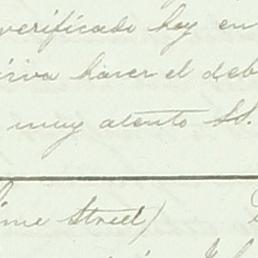 verificado hoy en
haver el deb
muy atento SS.
ime Street)